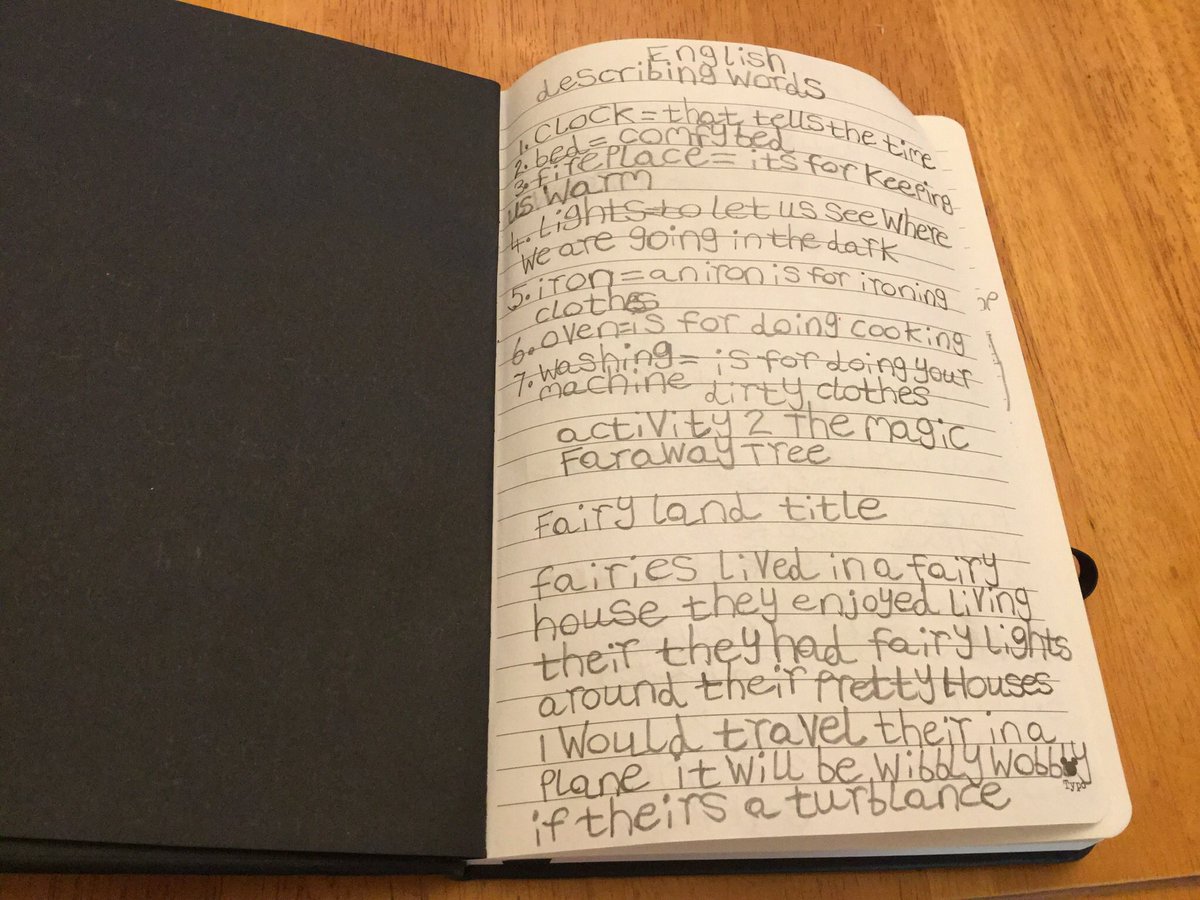 English
describing words
1. CLOCK = that tells the time
2. bed = comfy bed
3. fireplace = its for keeping
us warm
4. Lights to let us see where
we are going in the dark
5. iron = an iron is for ironing
clothes
6. oven = is for doing cooking
7. washing = is for doing your
machine dirty clothes
activity 2 The magic
Faraway Tree
Fairy land title
fairies lived in a fairy
house they enjoyed living
their they had fairy lights
around their pretty Houses
I would travel their in a
plane it will be wibbly wobbly
if theirs a turblance
Typo